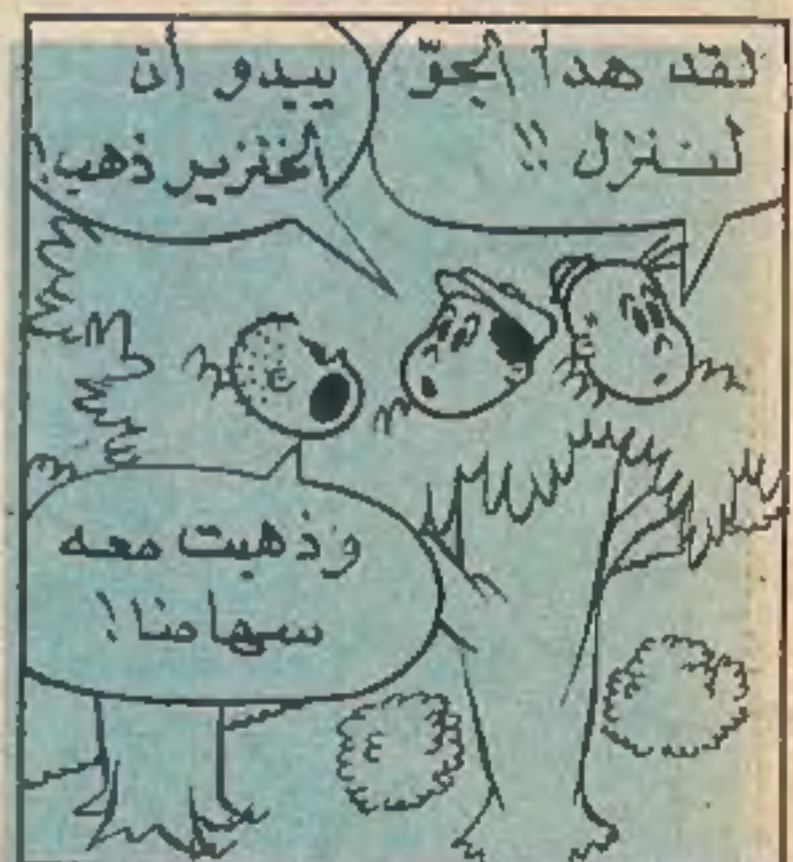 لقد هدأ الجوّ
لننزل !!
يبدو أن
الخنزير ذهب!
وذهبت معه
سهامنا!